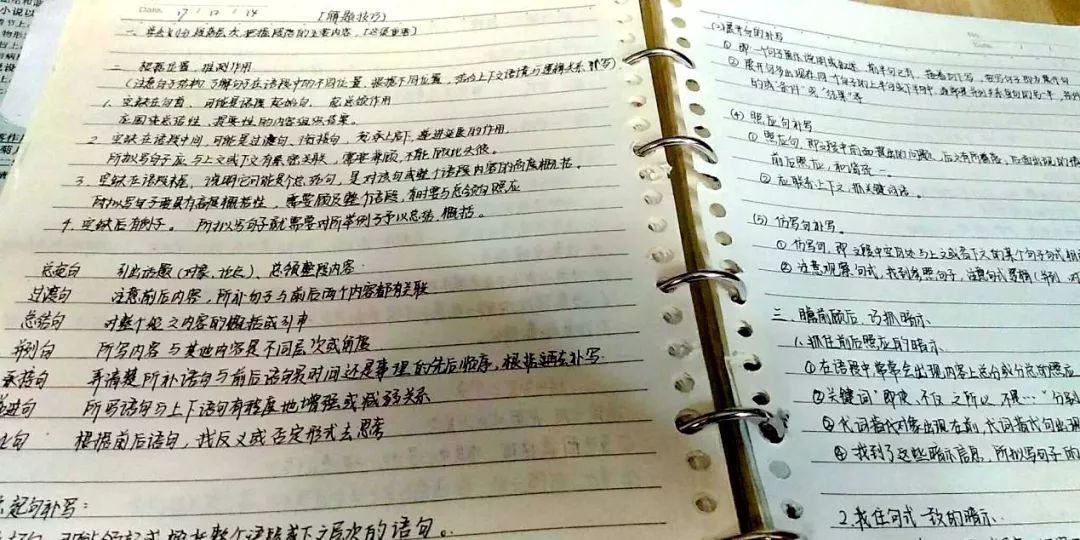 小说以
Date. 17 / 12 / 14 【解题技巧】
一、 层次,把握段落的主要内容。【这很重要】
二、根据位置,推测作用
(注意句子结构,了解句子在语段中的不同位置,根据不同位置,结合上下文语境与逻辑关系,补写)
1. 空缺在句首,可能是语段起始句,起总领作用
2. 空缺在语段中间,可能是过渡句,衔接句,起承上启下,推进延展的作用。
所拟写句子应与上文或下文有紧密关联,需要兼顾,不能顾此失彼。
3. 空缺在语段末尾,说明它可能是个总结句,是对该句或整个语段内容的高度概括。
所拟写句子要具有高度概括性,需要顾及整个语段,有时要与总领句照应
4. 空缺后有例子。 所拟写句子就需要对所举例子予以总结,概括。
总起句 引出话题(对象、论点)、总领整段内容
过渡句 注意前后内容,所补句子与前后两个内容都有关联
总结句 对整个论文内容的概括或引申
并列句 所写内容与其他内容是不同层次或角度
承接句 弄清楚所补语句与前后语句是时间还是事理的先后顺序,根据逻辑去补写
递进句 所写语句与上下语句有程度地增强或减弱关系
句 根据前后语句,找反义或否定形式去思考
总起句补写:
整个语段或下文层次的语句。
(3) 展开句的补写
① 即一个句子 说明或叙述,前半句已有,接着
② 展开句多出现在同一个句子的上半句或下半句中,
的或“条件”或“结果”等
(4) 照应句补写
① 照应句,即文段中前面提出的问题,后文有所照应,后面出现的情
前后照应,和谐统一。
② 应联系上下文,抓关键词语。
(5) 仿写句补写
① 仿写句,即文段中空白处与上文或者下文的某个句子句式相同
② 注意观察句式,找到参照句子,注意句式逻辑(并列、对
三、瞻前顾后,巧抓暗示
1. 抓住前后照应的暗示
① 在语段中常常会出现内容上总分或分总的照应
② 关键词“即使、不仅、之所以、不是……”分别
③ 代词指代对象出现在前,代词指代句出现
④ 找到了这些暗示信息,所拟写句子的
2. 抓住句式一致的暗示